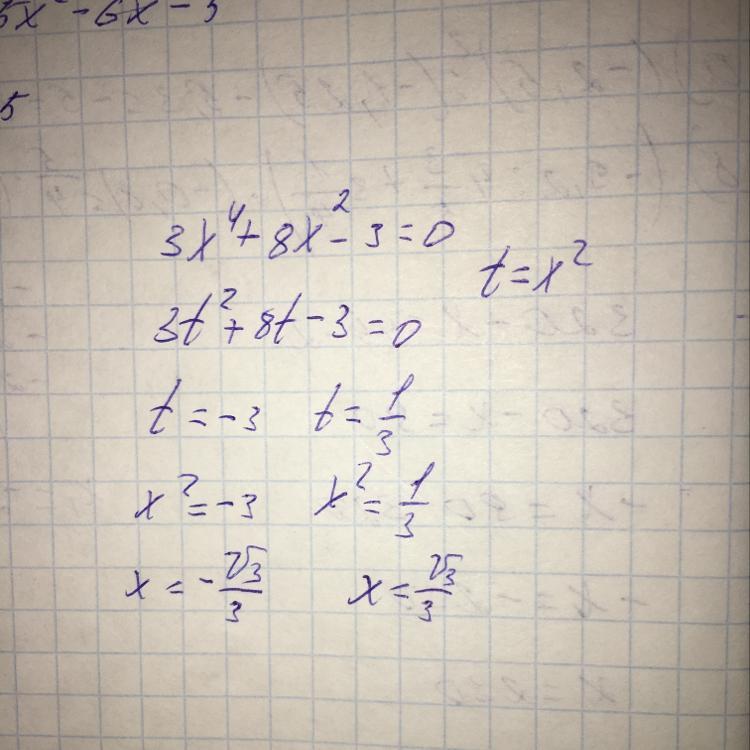 5x² - 6x - 3
5
3x⁴ + 8x² - 3 = 0
t = x²
3t² + 8t - 3 = 0
t = -3    t = 1/3
x² = -3    x² = 1/3
x = -√3/3    x = √3/3